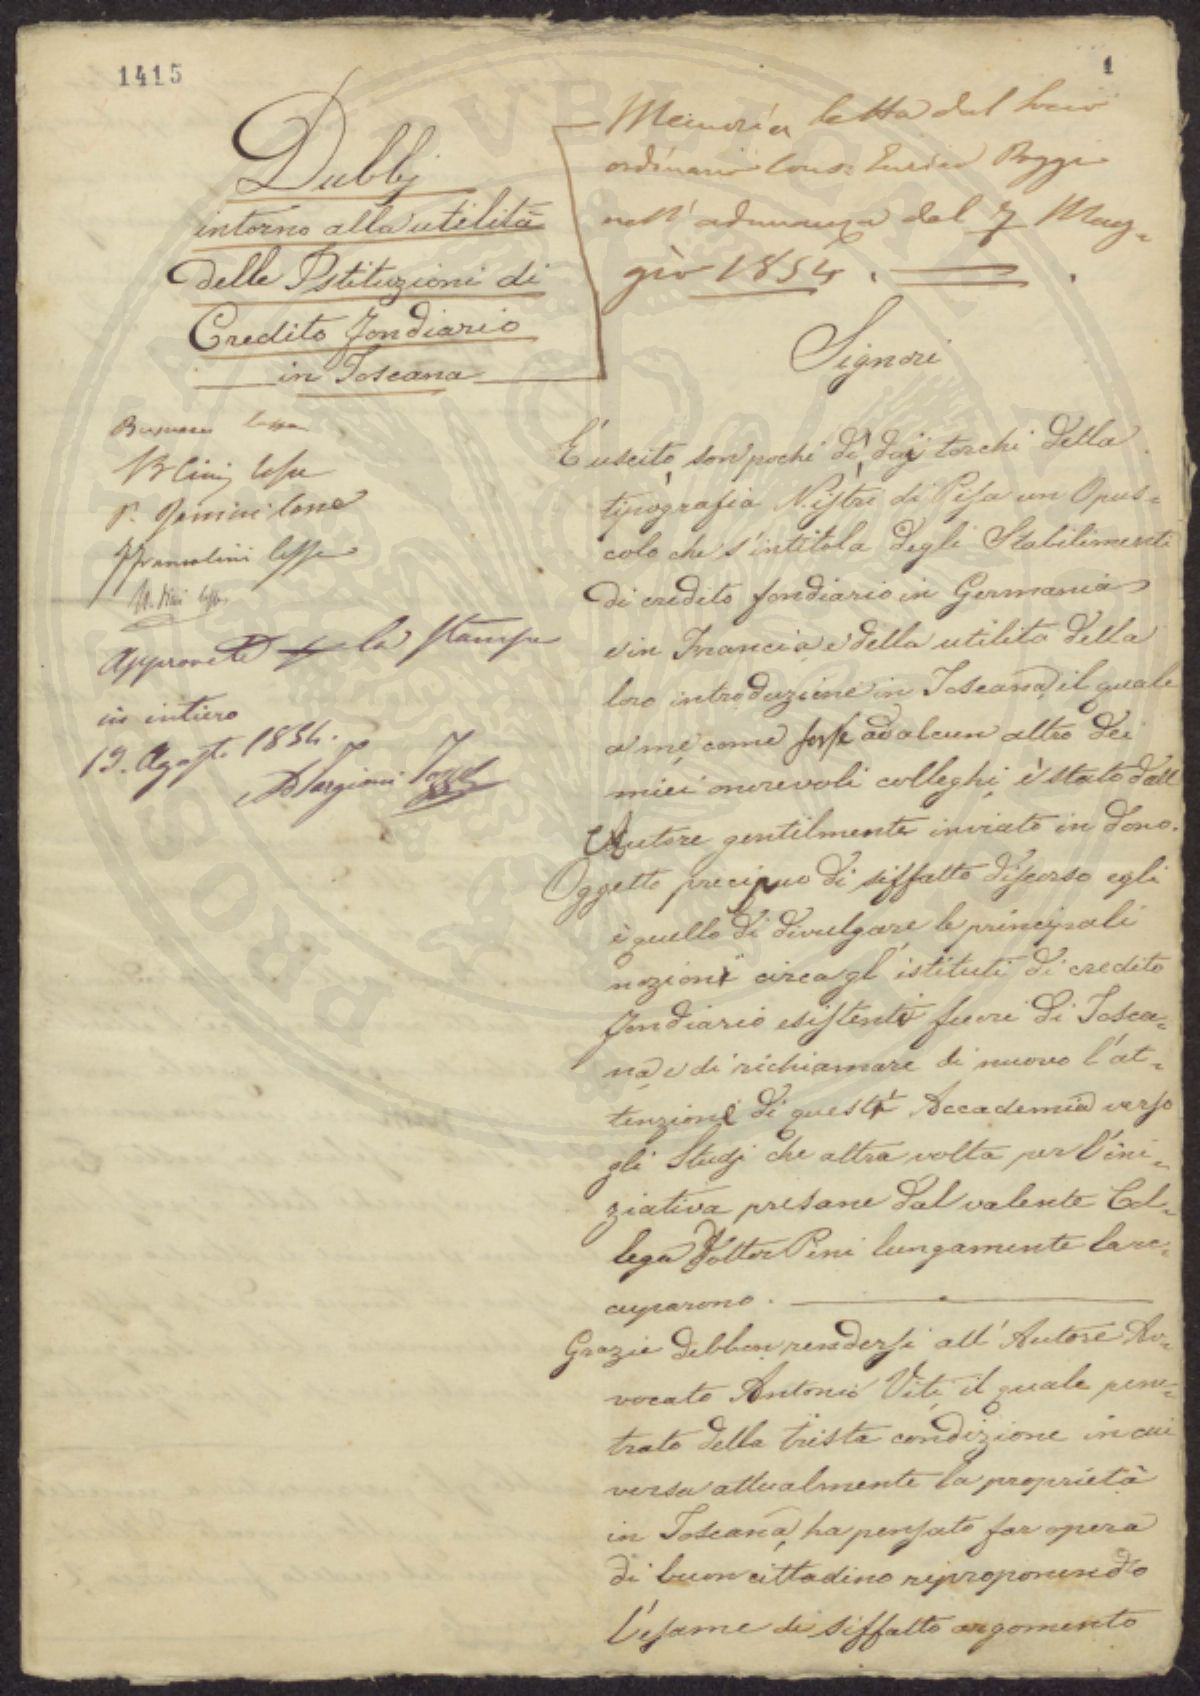 1415
1
Dubbj
intorno alla utilità
delle Istituzioni di
Credito fondiario
in Toscana
Memoria letta dal Socio
ordinario Cons: Enrico Poggi
nell'adunanza del 7 Mag=
gio 1854.
Signori
È uscito son pochi dì dai torchi della
tipografia Nistri di Pisa un Opus=
colo che s'intitola degli Stabilimenti
di credito fondiario in Germania
e in Francia e della utilità della
loro introduzione in Toscana, il quale
a me come forse ad alcun altro dei
miei onorevoli colleghi, è stato dall'
Autore gentilmente inviato in dono.
Oggetto precipuo di siffatto discorso egli
è quello di divulgare le principali
nozioni circa gl'istituti di credito
fondiario esistenti fuori di Tosca=
na e di richiamare di nuovo l'at=
tenzione di questa Accademia verso
gli Studj che altra volta per l'ini=
ziativa presane dal valente Col=
lega Dottor Pini lungamente la oc=
cuparono.
Grazie debbon rendersi all'Autore Av=
vocato Antonio Viti, il quale pene=
trato della trista condizione in cui
versa attualmente la proprietà
in Toscana, ha pensato far opera
di buon cittadino riproponendo
l'esame di siffatto argomento
lesse
lesse
Approvata per la stampa
in intiero
19. Agosto 1854.
Targioni Tozzetti